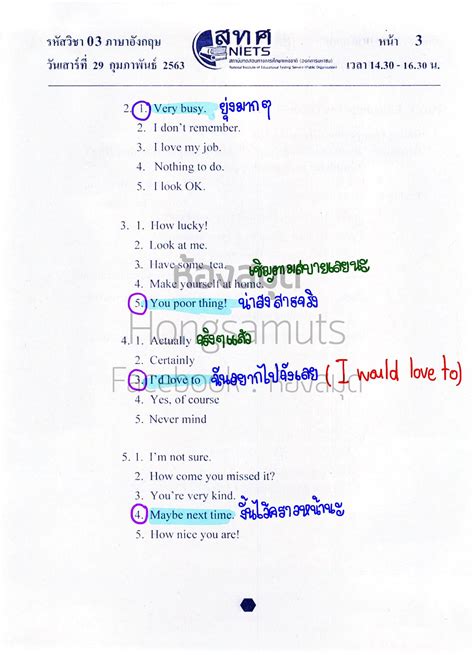 รหัสวิชา 03 ภาษาอังกฤษ
วันเสาร์ที่ 29 กุมภาพันธ์ 2563
สทศ
NIETS
สถาบันทดสอบทางการศึกษาแห่งชาติ (องค์การมหาชน)
National Institute of Educational Testing Service (Public Organization)
หน้า 3
เวลา 14.30 - 16.30 น.
2. 1. Very busy. ยุ่งมากๆ
2. I don't remember.
3. I love my job.
4. Nothing to do.
5. I look OK.
3. 1. How lucky!
2. Look at me.
3. Have some tea.
4. Make yourself at home. เชิญตามสบายเลยนะ
5. You poor thing! น่าสงสารจริง
ห้องสมุด
Hongsamuts
4. 1. Actually จริงๆแล้ว
2. Certainly
3. I'd love to ฉันอยากไปจังเลย (I would love to)
Facebook : ห้องสมุด
4. Yes, of course
5. Never mind
5. 1. I'm not sure.
2. How come you missed it?
3. You're very kind.
4. Maybe next time. งั้นไว้คราวหน้านะ
5. How nice you are!